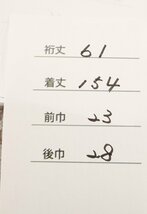 裄丈 61
着丈 154
前巾 23
後巾 28